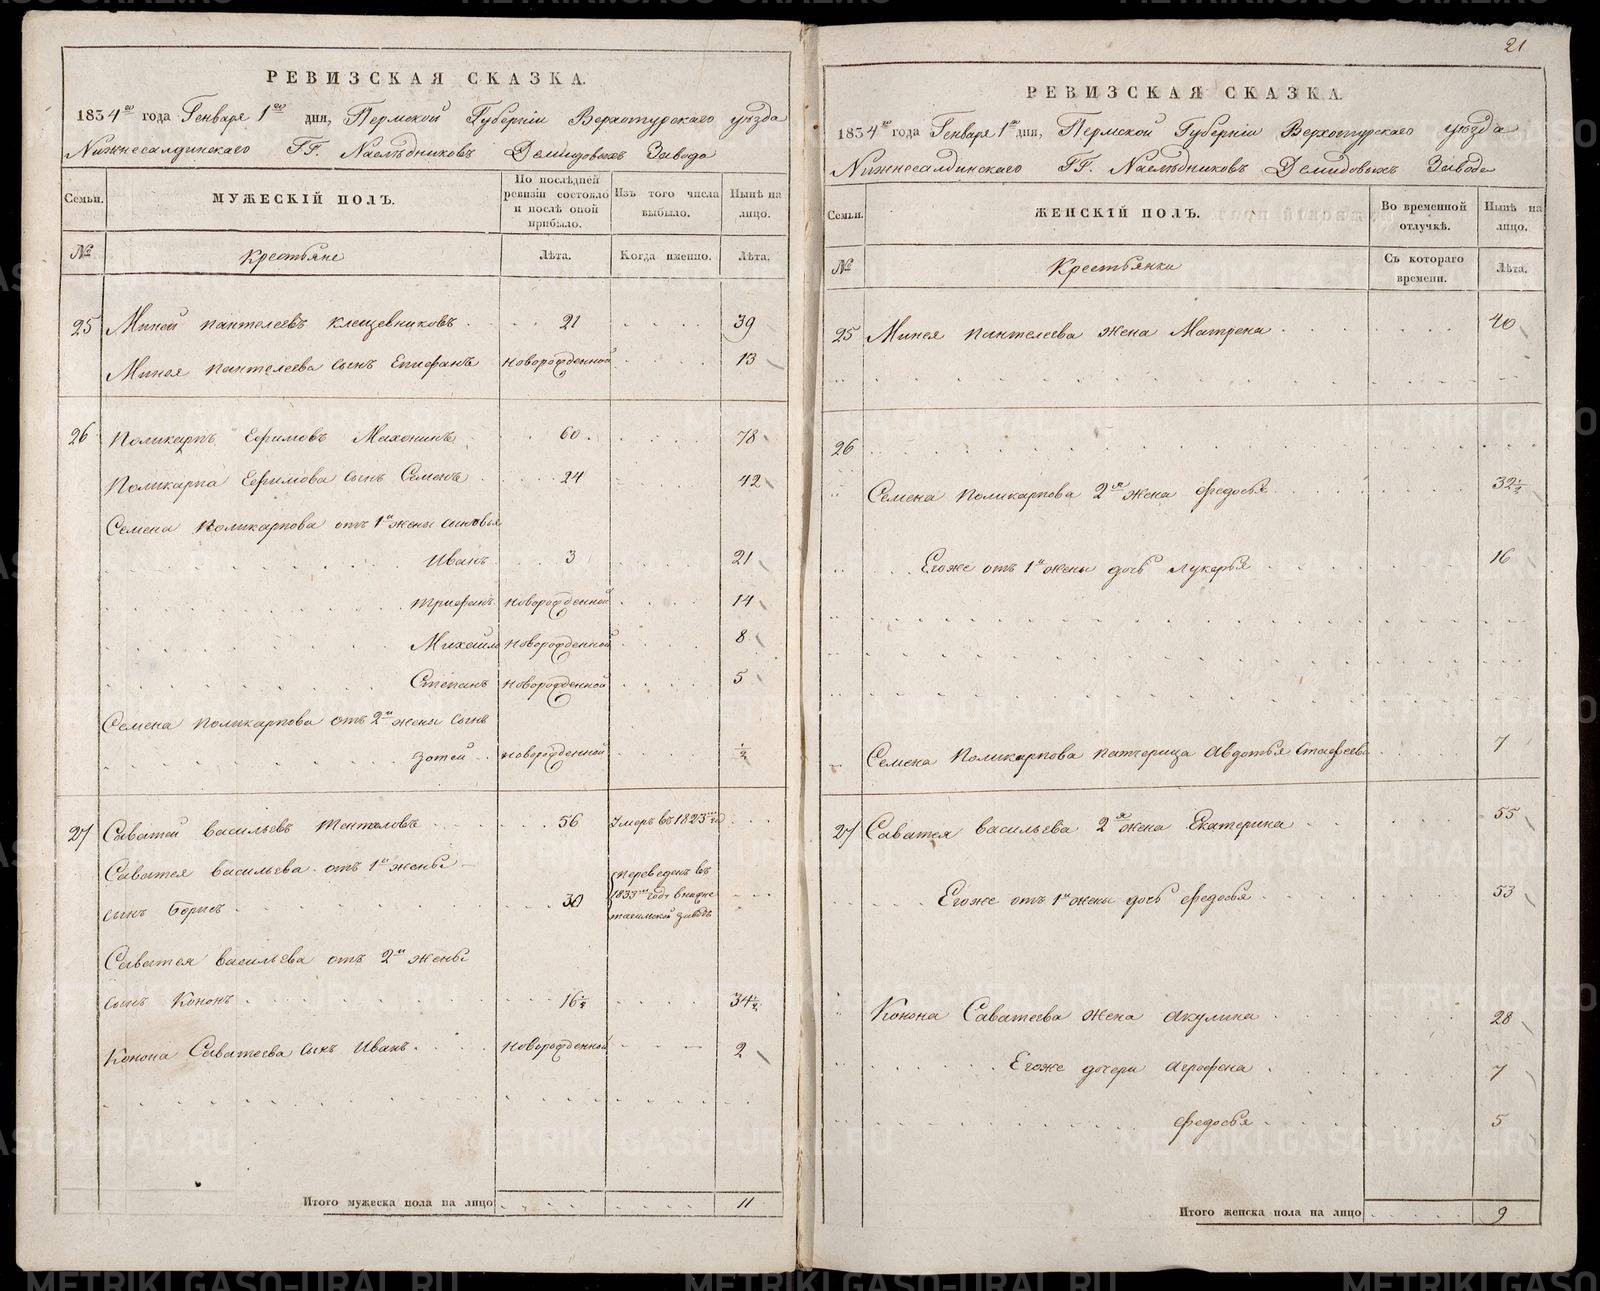 РЕВИЗСКАЯ СКАЗКА.
1834го года Генваря 1го дня, Пермской Губерніи Верхотурскаго уѣзда
Нижнесалдинскаго ГГ. Наслѣдниковъ Демидовыхъ Завода
Семьи. МУЖЕСКІЙ ПОЛЪ. По послѣдней ревизіи состояло и послѣ оной прибыло. Изъ того числа выбыло. Нынѣ на лицо.
№ Крестьяне Лѣта. Когда именно. Лѣта.
25 Миней Пантелеевъ Клещевниковъ 21 39
Минея Пантелеева сынъ Епифанъ новорожденной 13
26 Поликарпъ Ефимовъ Махонинъ 60 78
Поликарпа Ефимова сынъ Семенъ 24 42
Семена Поликарпова отъ 1й жены сыновья
Иванъ 3 21
Трифанъ новорожденной 14
Михайло новорожденной 8
Степанъ новорожденной 5
Семена Поликарпова отъ 2й жены сынъ
Зотей новорожденной ½
27 Саватей Васильевъ 56 Умеръ въ 1823м
Саватея Васильева отъ 1й жены
сынъ Борисъ 30 переведенъ въ 1833м году в нижне тагильской заводъ
Саватея Васильева отъ 2й жены
сынъ Кононъ 16½ 34½
Конона Саватеева сынъ Иванъ новорожденной 2
Итого мужеска пола на лицо 11
21
РЕВИЗСКАЯ СКАЗКА.
1834го года Генваря 1го дня, Пермской Губерніи Верхотурскаго уѣзда
Нижнесалдинскаго ГГ. Наслѣдниковъ Демидовыхъ Завода
Семьи. ЖЕНСКІЙ ПОЛЪ. Во временной отлучкѣ. Нынѣ на лицо.
№ Крестьянки Съ котораго времени. Лѣта.
25 Минея Пантелеева жена Матрена 40
26
Семена Поликарпова 2я жена Федосья 32½
Егоже отъ 1й жены дочь Лукерья 16
Семена Поликарпова патчерица Авдотья 7
27 Саватея Васильева 2я жена Екатерина 55
Егоже отъ 1й жены дочь Федосья 53
Конона Саватеева жена Акулина 28
Егоже дочери Агрофена 7
Федосья 5
Итого женска пола на лицо 9
METRIKI.GASO-URAL.RU